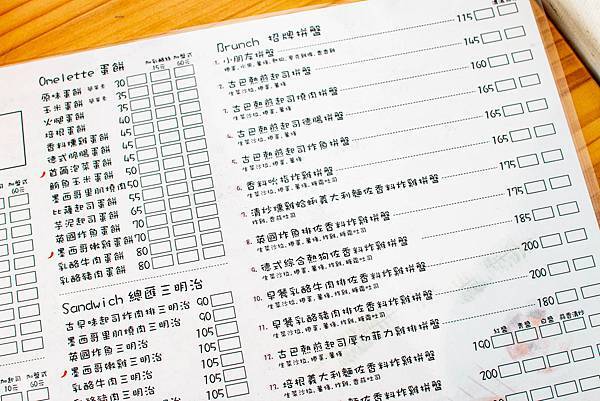 Omelette 蛋餅
加乳酪絲 加盤式
15元 60元
原味蛋餅 30
玉米蛋餅 35
火腿蛋餅 35
培根蛋餅 40
香料燻雞蛋餅 45
德式開腸蛋餅 45
首爾泡菜蛋餅 45
鮪魚玉米蛋餅 45
墨西哥里肌燒肉 50
比薩起司蛋餅 50
芋泥起司蛋餅 55
英國炸魚蛋餅 65
墨西哥嫩雞蛋餅 70
乳酪牛肉蛋餅 80
乳酪豬肉蛋餅 80
Sandwich 總匯三明治
古早味起司炸肉排三明治 90
墨西哥里肌燒肉三明治 90
英國炸魚三明治 105
墨西哥嫩雞三明治 105
乳酪牛肉三明治 105
乳酪豬肉三明治 105
加盤式
60元
加起司 加盤式
10元 60元
Brunch 招牌拼盤
1. 小朋友拼盤 115
2. 古巴熱煎起司拼盤 145
生菜沙拉, 嫩蛋, 薯條
3. 古巴熱煎起司燒肉拼盤 160
生菜沙拉, 嫩蛋, 薯條
4. 古巴熱煎起司德腸拼盤 165
生菜沙拉, 嫩蛋, 薯條
5. 古巴熱煎起司炸魚拼盤 165
生菜沙拉, 嫩蛋, 薯條
6. 香料吮指炸雞拼盤 165
7. 清炒燻雞蛤蜊義大利麵佐香料炸雞拼盤 175
8. 英國炸魚排佐香料炸雞拼盤 175
9. 德式綜合熱狗佐香料炸雞拼盤 185
10. 早餐乳酪牛肉排佐香料炸雞拼盤 200
11. 早餐乳酪豬肉排佐香料炸雞拼盤 200
12. 古巴熱煎起司厚切菲力雞排拼盤 180
紅醬 青醬 白醬 蒜香清炒
13. 培根義大利麵佐香料炸雞拼盤 190
200